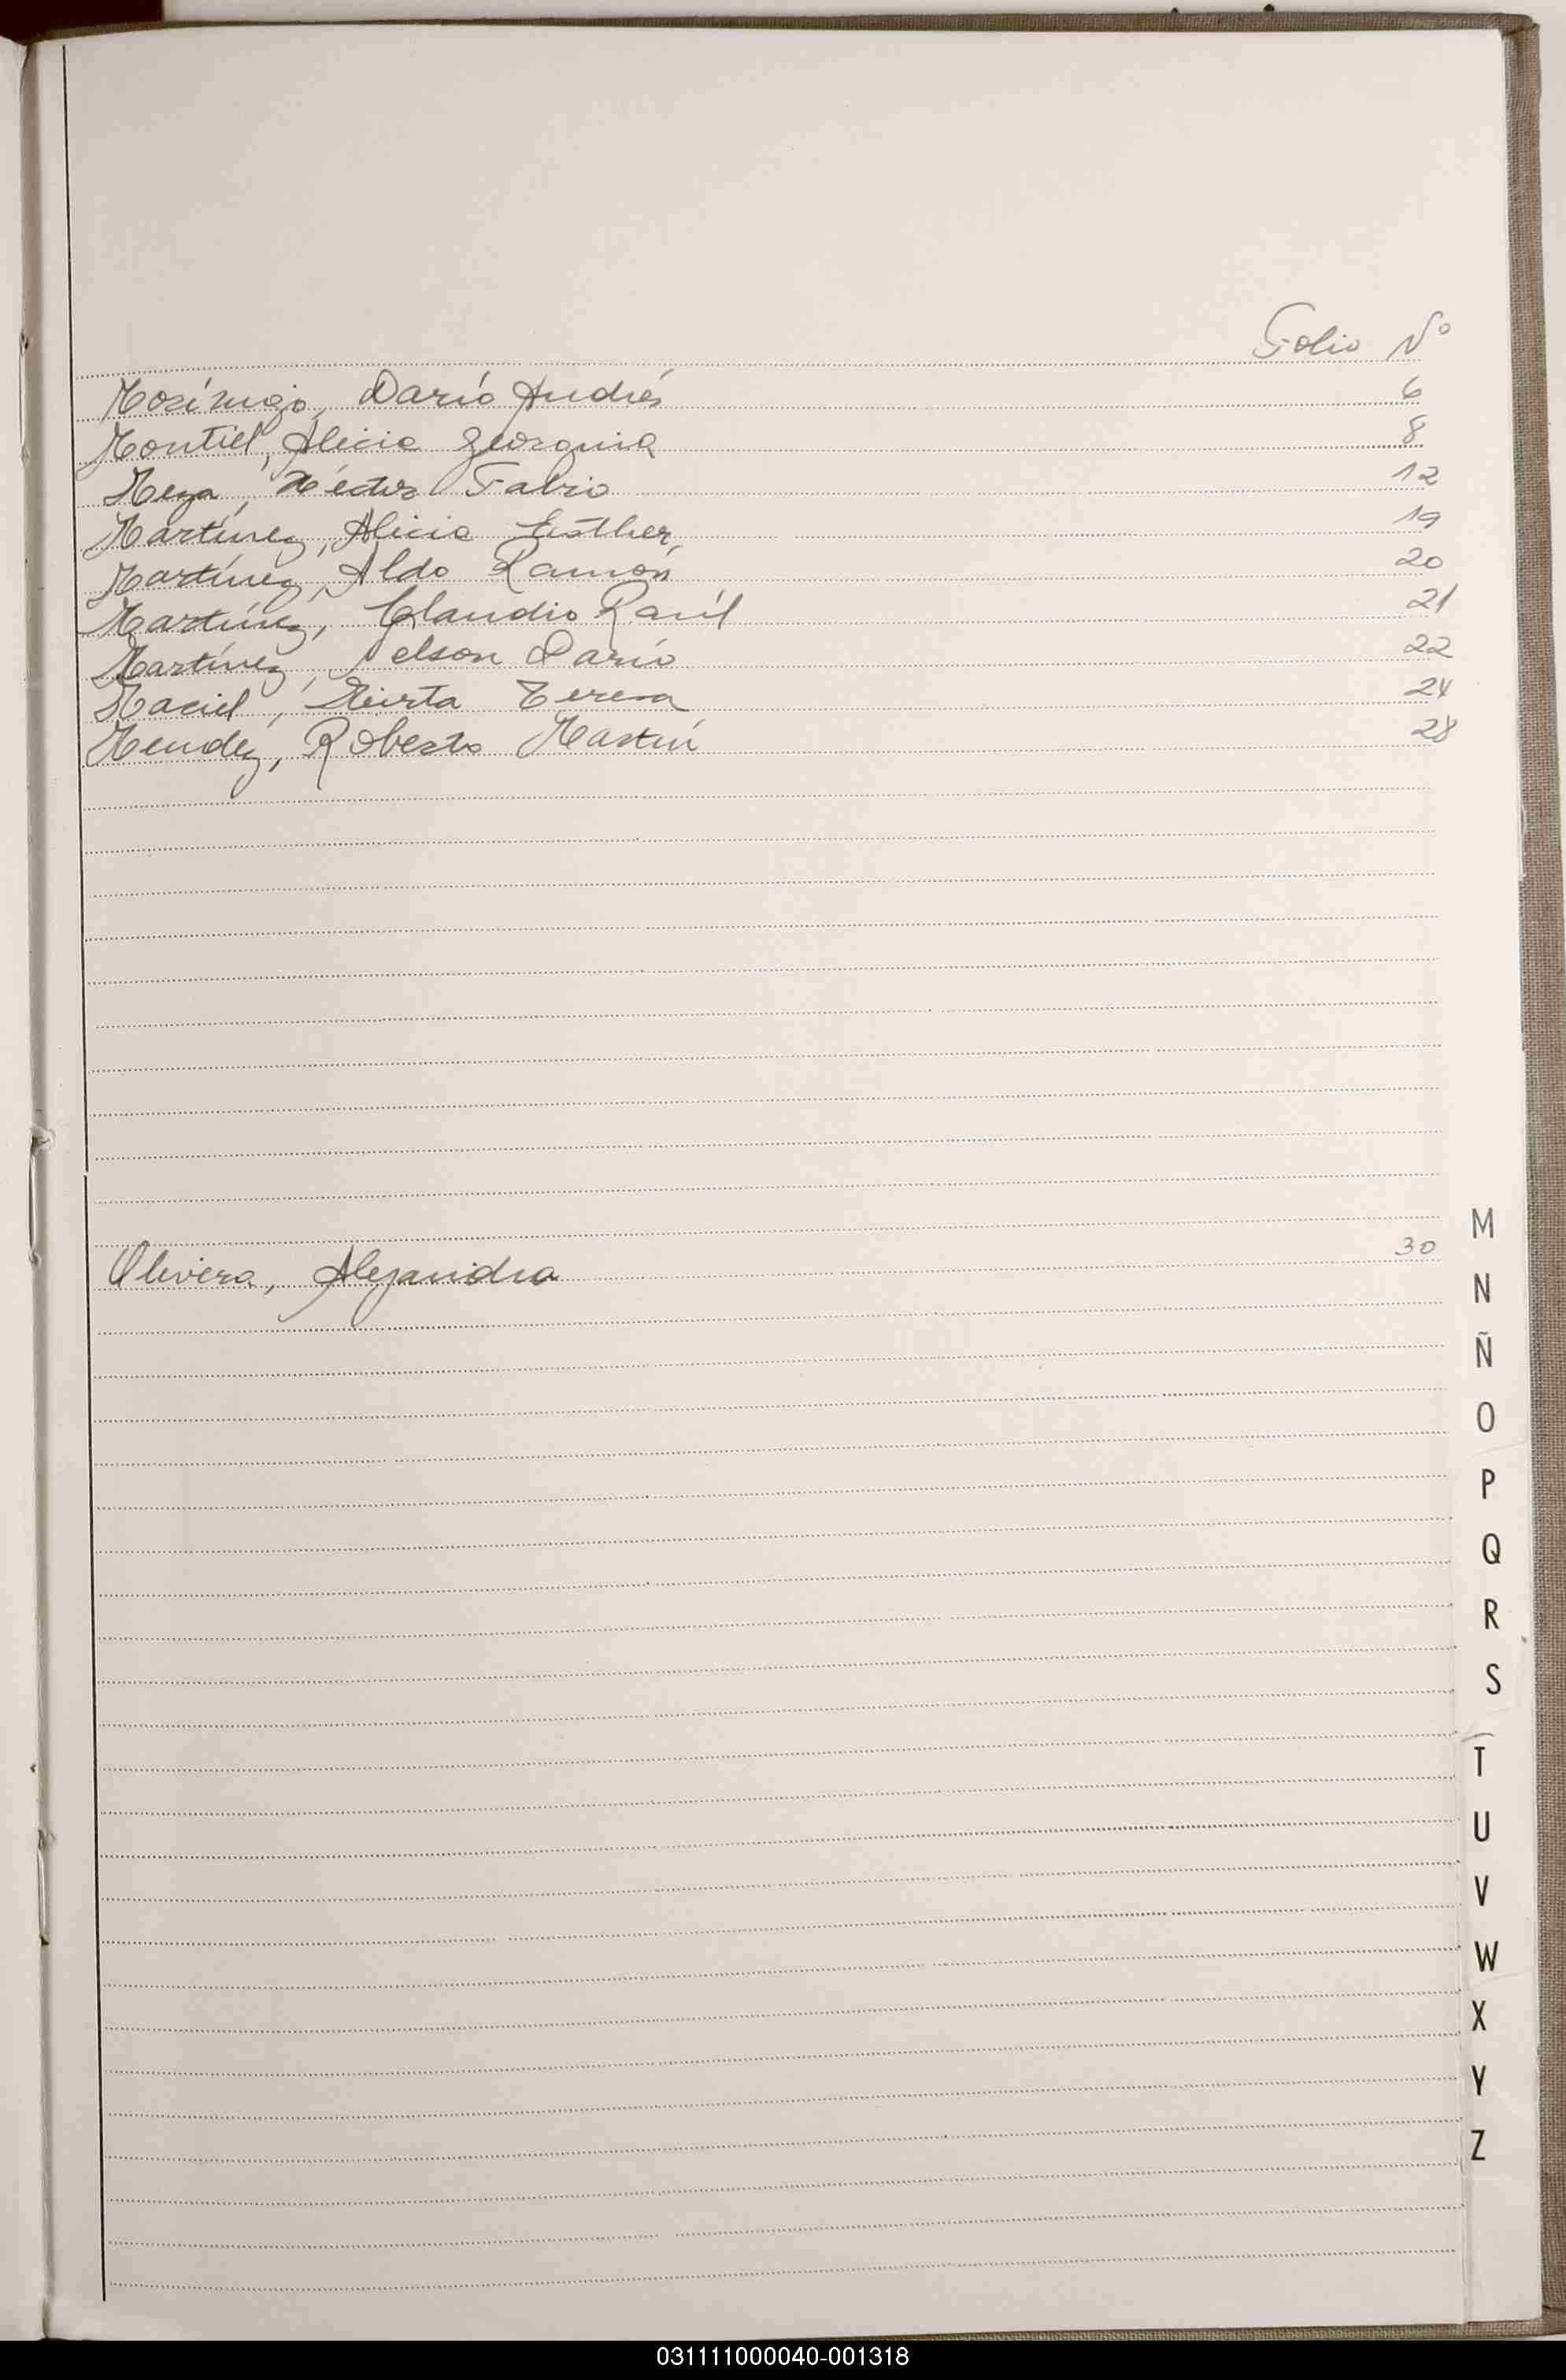 Folio Nº
Morínigo, Darío Andrés 6
Montiel, Alicia Georgina 8
Meza, Héctor Fabio 12
Martínez, Alicia Esther, 19
Martínez, Aldo Ramón 20
Martínez, Claudio Raúl 21
Martínez, Nelson Darío 22
Maciel, Mirta Teresa 24
Mendez, Roberto Martín 28
Olivera, Alejandra 30
M
N
Ñ
O
P
Q
R
S
T
U
V
W
X
Y
Z
031111000040-001318